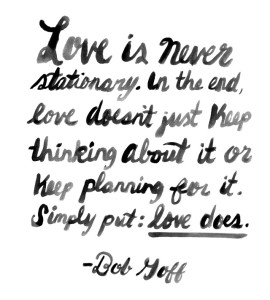 Love is never
stationary. In the end,
love doesn't just keep
thinking about it or
keep planning for it.
Simply put: love does.
-Bob Goff